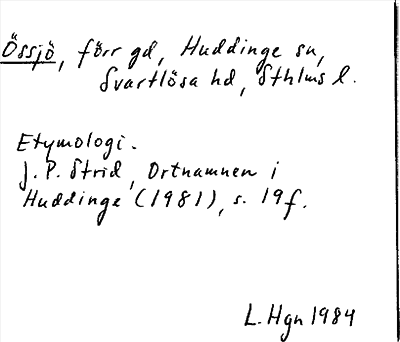 Össjö, förr gd, Huddinge sn,
Svartlösa hd, Sthlms l.
Etymologi.
J. P. Strid, Ortnamnen i
Huddinge (1981), s. 19f.
L. Hgn 1984